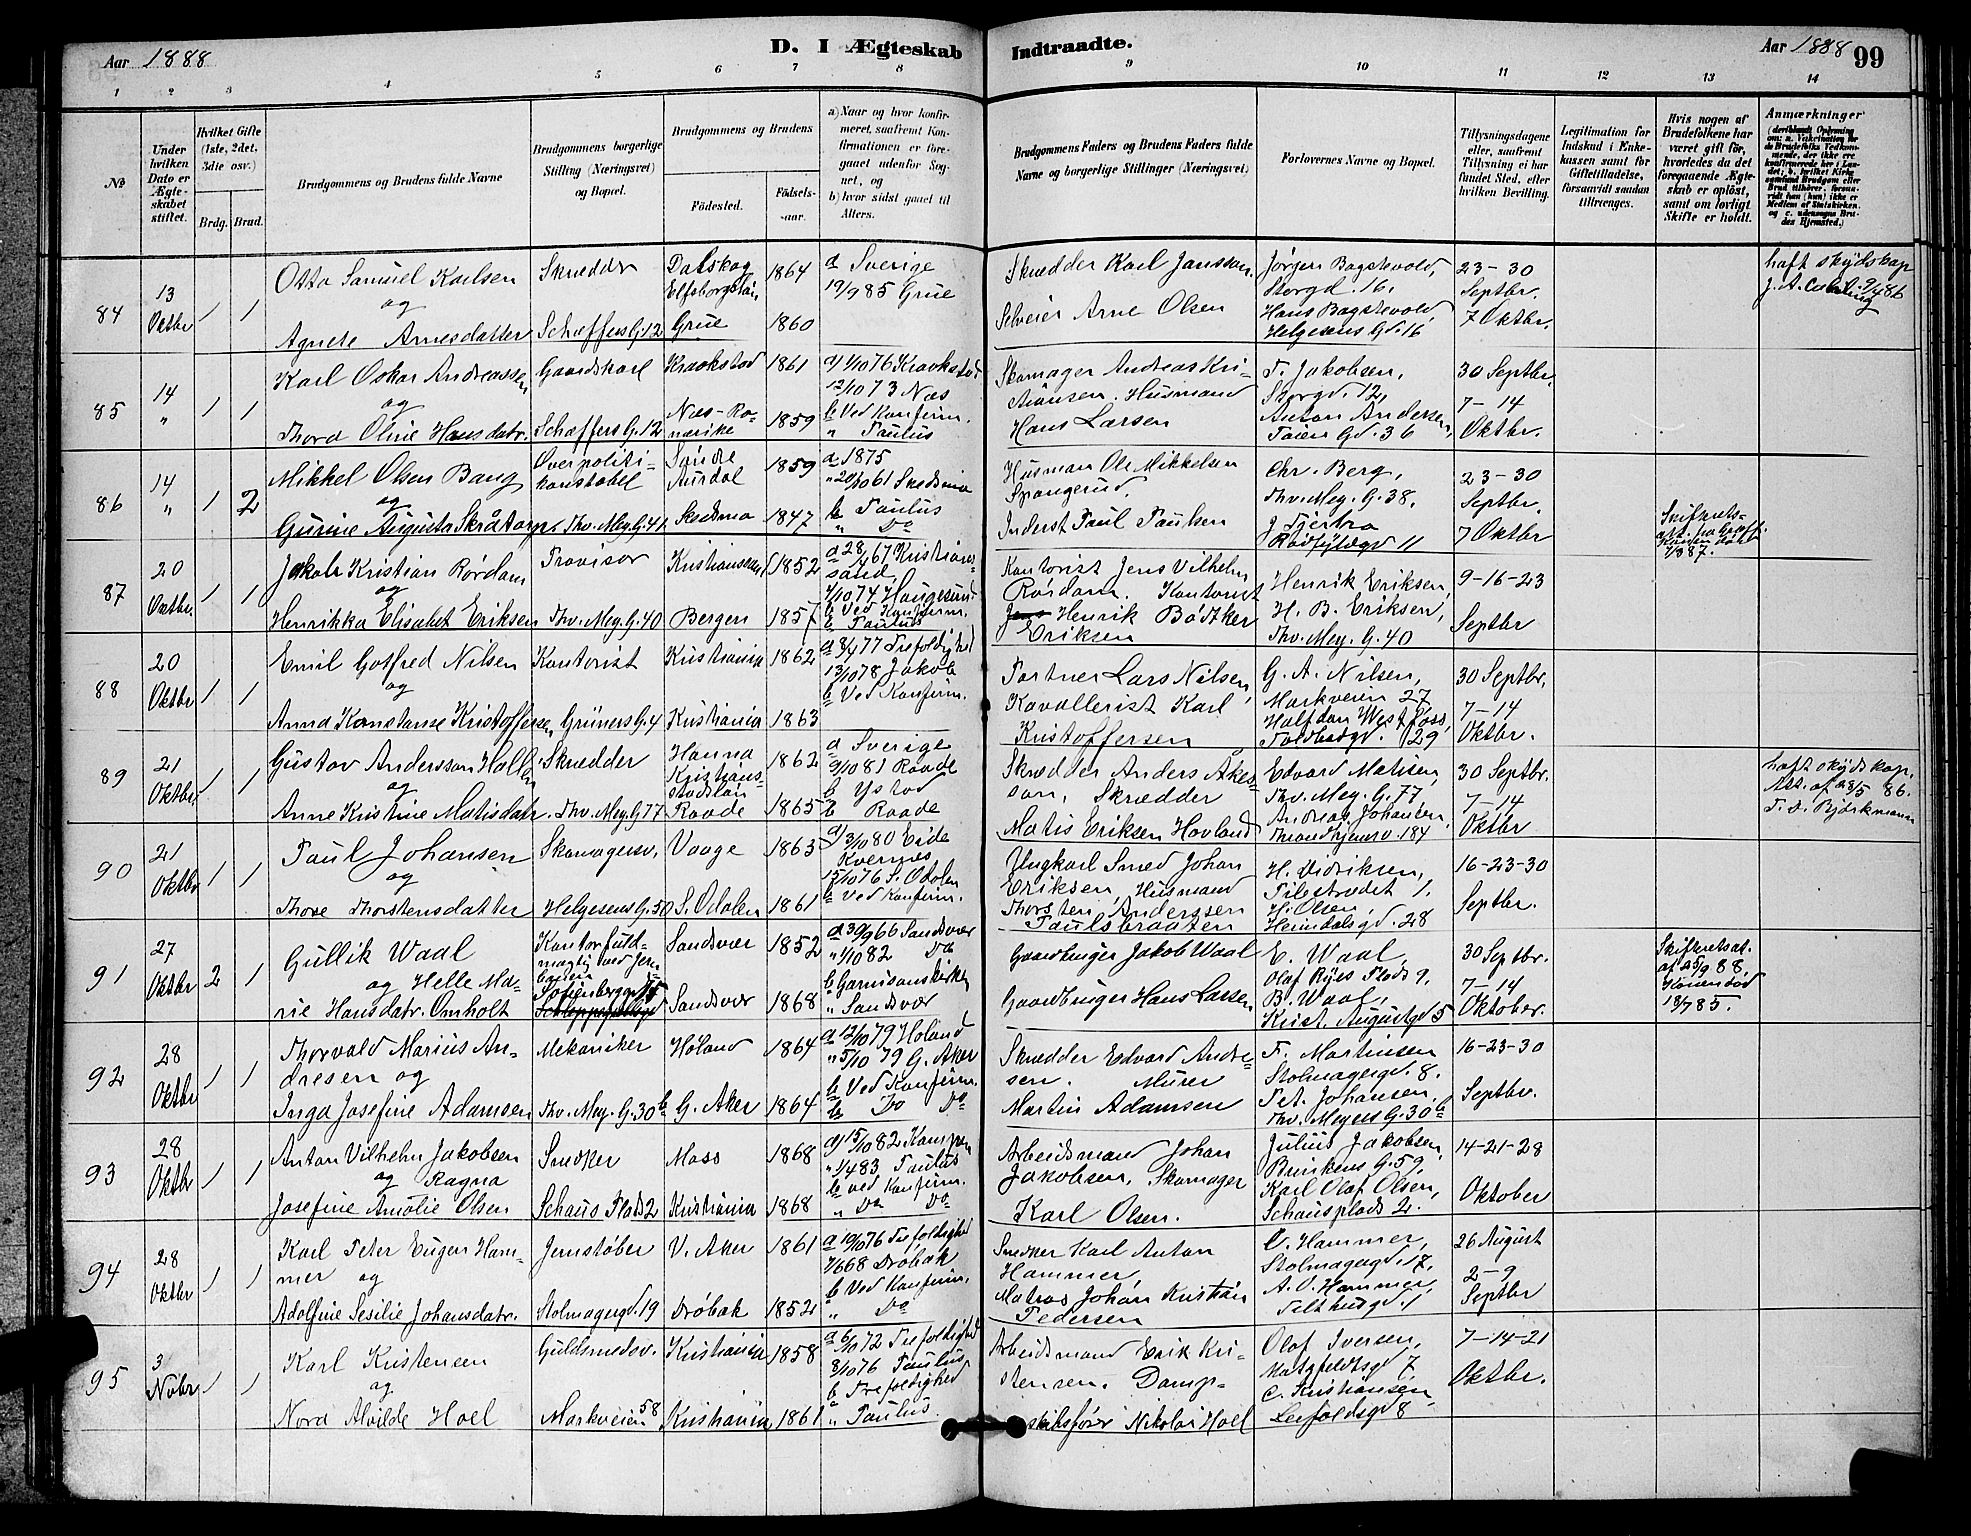 Aar 1888
D. I Ægteskab Indtraadte.
Aar 1888 99
1 2 3 4 5 6 7 8 9 10 11 12 13 14
No
Under hvilken Dato er Ægteskabet stiftet.
Hvilket Gifte (1ste, 2det, 3die osv.)
Brdg. Brud.
Brudgommens og Brudens fulde Navne
Brudgommens borgerlige Stilling (Næringsvei) og Bopæl.
Brudgommens og Brudens
Födested. Födselsaar.
a) Naar og hvor konfirmeret, saafremt Konfirmationen er foregaaet udenfor Sognet, og
b) hvor sidst gaaet til Alters.
Brudgommens Faders og Brudens Faders fulde Navne og borgerlige Stillinger (Næringsvei)
Forlovernes Navne og Bopæl.
Tillysningsdagene eller, saafremt Tillysning ei har fundet Sted, efter hvilken Bevilling.
Legitimation for Indskud i Enkekassen samt for Giftetilladelse, forsaavidt saadan tiltrænges.
Hvis nogen af Brudefolkene har været gift før, hvorledes da det foregaaende Ægteskab er oplöst, samt om lovligt Skifte er holdt.
Anmærkninger
84
13 Oktbr
1 1
Otto Samuel Karlsen
og
Agnete Arnesdatter
Skrædder
Schæffers G. 12
Dalskog Elfsborgslän 1864
Grue 1860
a Sverige
19/9 85 Grue
Skrædder Karl Jansson.
Selveier Arne Olsen
Jørgen Bagstevold,
Storgd. 16.
Hans Bagstevold,
Helgesens Gd. 16
23-30
Septbr.
7 Oktbr.
85
14
"
1 1
Karl Oskar Andreassen
og
Thora Oline Hansdatr.
Gaardskarl
Schæffers G. 12
Kraakstad 1861
Næs-Romerike 1859
a 1/10 76 Kraakstad
12/10 73 Næs
b Ved Konfirm.
" Paulus
Skomager Andreas Kristiansen. Husmand
Hans Larsen
T. Jakobsen,
Storgd. 12,
Anton Andersen,
Tøien Gd. 36
30 Septbr.
7-14
Oktbr.
86
14
"
1 2
Mikkel Olsen Bang
og
Gurine Augusta Skråtorp.
Overpolitikonstabel
Thv. Mey. G. 41
Søndre Aurdal 1859
Skedsmo 1847
a 1875
" 20/10 61 Skedsmo
b Paulus
" Do
Husman Ole Mikkelsen
Spangerud.
Inderst Paul Paulsen
Chr. Berg,
Thv. Mey. G. 38.
23-30
Septbr.
7 Oktbr
87
20
Oktbr.
1 1
Jakob Kristian Rørdam
og
Henrikka Elisabet Eriksen
Provisor
Thv. Mey. G. 40
Kristianssand 1852
Bergen 1857
a 28/4 67 Kristianssand
4/10 74 Haugesund
b Ved Konfirm.
b Paulus
Kontorist Jens Vilhelm
Rørdam. Kontorist
Henrik Bødtker
Eriksen
Henrik Eriksen,
H. B. Eriksen,
Thv. Mey. G. 40
9-16-23
Septbr
88
20
Oktbr
1 1
Emil Gotfred Nilsen
og
Anna Konstanse Kristoffersen
Kontorist
Grüners G. 4
Kristiania 1862
Kristiania 1863
a 8/4 77 Trefoldighed
13/10 78 Jakob
b Ved Konfirm.
Portner Lars Nilsen,
Kavallerist Karl
Kristoffersen
G. A. Nilsen,
Markveien 27
Halfdan Westfoss,
Toldbodgd. 29
30 Septbr.
7-14
Oktbr.
89
21
Oktbr
1 1
Gustav Andersson Hallen
og
Anne Kristine Matisdatr.
Skrædder
Thv. Mey. G. 77
Hanna
Kristiansstadslän 1862
Raade 1865
a Sverige
9/10 81 Raade
b Ystad
b Raade
Skrædder Anders Åkesson, Skrædder
Matis Eriksen Hovland
Edvard Matisen,
Thv. Mey. G. 77
Andreas Johansen,
Throndhjemsv. 184
30 Septbr.
7-14
Oktbr
haft skydskop.
Att. af 23/5 86.
T. d. Bjørkmann
90
21
Oktbr
1 1
Paul Johansen
og
Thore Thorstensdatter
Skomagersv.
Helgesens G. 50
Vaage 1863
S. Odalen 1861
a 3/10 80 Eide
Kvernes
15/10 76 S. Odalen
b Ved Konfirm.
Ungkarl Smed Johan
Eriksen, Husmand
Thorsten Anderssen
Paulsbraaten
H. Didriksen,
Pilestrædet 1.
H. Olsen,
Heimdalsgd. 28
16-23-30
Septbr.
91
27
Oktbr
2 1
Gullik Waal
og Helle Marie Hansdatr. Omholt
Kontorfuldmægtig ved Jernbanen
Sofienberggd. 5
Sandsvær 1852
Sandsvær 1868
a 30/9 66 Sandsvær
" 1/10 82 Do
b Garnisonskirken
" Sandsvær
Gaardbruger Jakob Waal
Gaardbruger Hans Larsen
E. Waal,
Olaf Ryes Plads 9,
B. Waal,
Krist. Augustgd 5
30 Septbr.
7-14
Oktober.
Skifteretsat.
af 25/9 88.
Konen død
18/7 85.
92
28
Oktbr
1 1
Thorvald Marius Andresen og
Inga Josefine Adamsen
Mekaniker
Thv. Mey. G. 30 b
Høland 1864
G. Aker 1864
a 12/10 79 Høland
" 5/10 79 G. Aker
b Ved Konfirm.
b Do Do
Skrædder Edvard Andresen. Murer
Martin Adamsen
F. Martinsen
Stolmagergd. 8.
Pet. Johansen,
Thv. Meyers G. 30 b
16-23-30
Septbr.
93
28
Oktbr
1 1
Anton Vilhelm Jakobsen
og Ragna
Josefine Amalie Olsen
Snedker
Schous Plads 2
Moss 1868
Kristiania 1868
a 15/10 82 Kampen
" 1/4 83 Paulus
b ved Konfirm.
" Do Do
Arbeidsmand Johan
Jakobsen, Skomager
Karl Olsen.
Julius Jakobsen,
Brinkens G. 59,
Karl Olaf Olsen,
Schousplads 2.
14-21-28
Oktober
94
28
Oktbr
1 1
Karl Peter Eugen Hammer og
Adolfine Sesilie Johansdatr.
Jernstøber
Stolmagergd. 19
V. Aker 1861
Drøbak 1852
a 19/10 76 Trefoldighed
7/6 68 Drøbak
b Ved Konfirm.
" Do
Snedker Karl Anton
Hammer,
Matros Johan Kristian
Pedersen
Hammer,
Stolmagergd. 17,
A. O. Hammer,
Telthusgd. 1
26 August
2-9
Septbr
95
3
Nvbr
1 1
Karl Kristensen
og
Nora Alvilde Hoel
Guldsmedsv.
Markveien 58
Kristiania 1858
Kristiania 1861
a 6/10 72 Trefoldighed
8/10 76 Paulus
b Trefoldighed
" Paulus
Arbeidsmand Erik Kristensen. Dampskibsfører Nikolai Hoel
Olaf Iversen,
Motzfeldtsgd 7
C. Kristiansen
Leirfaldsgd 8
7-14-21
Oktbr.